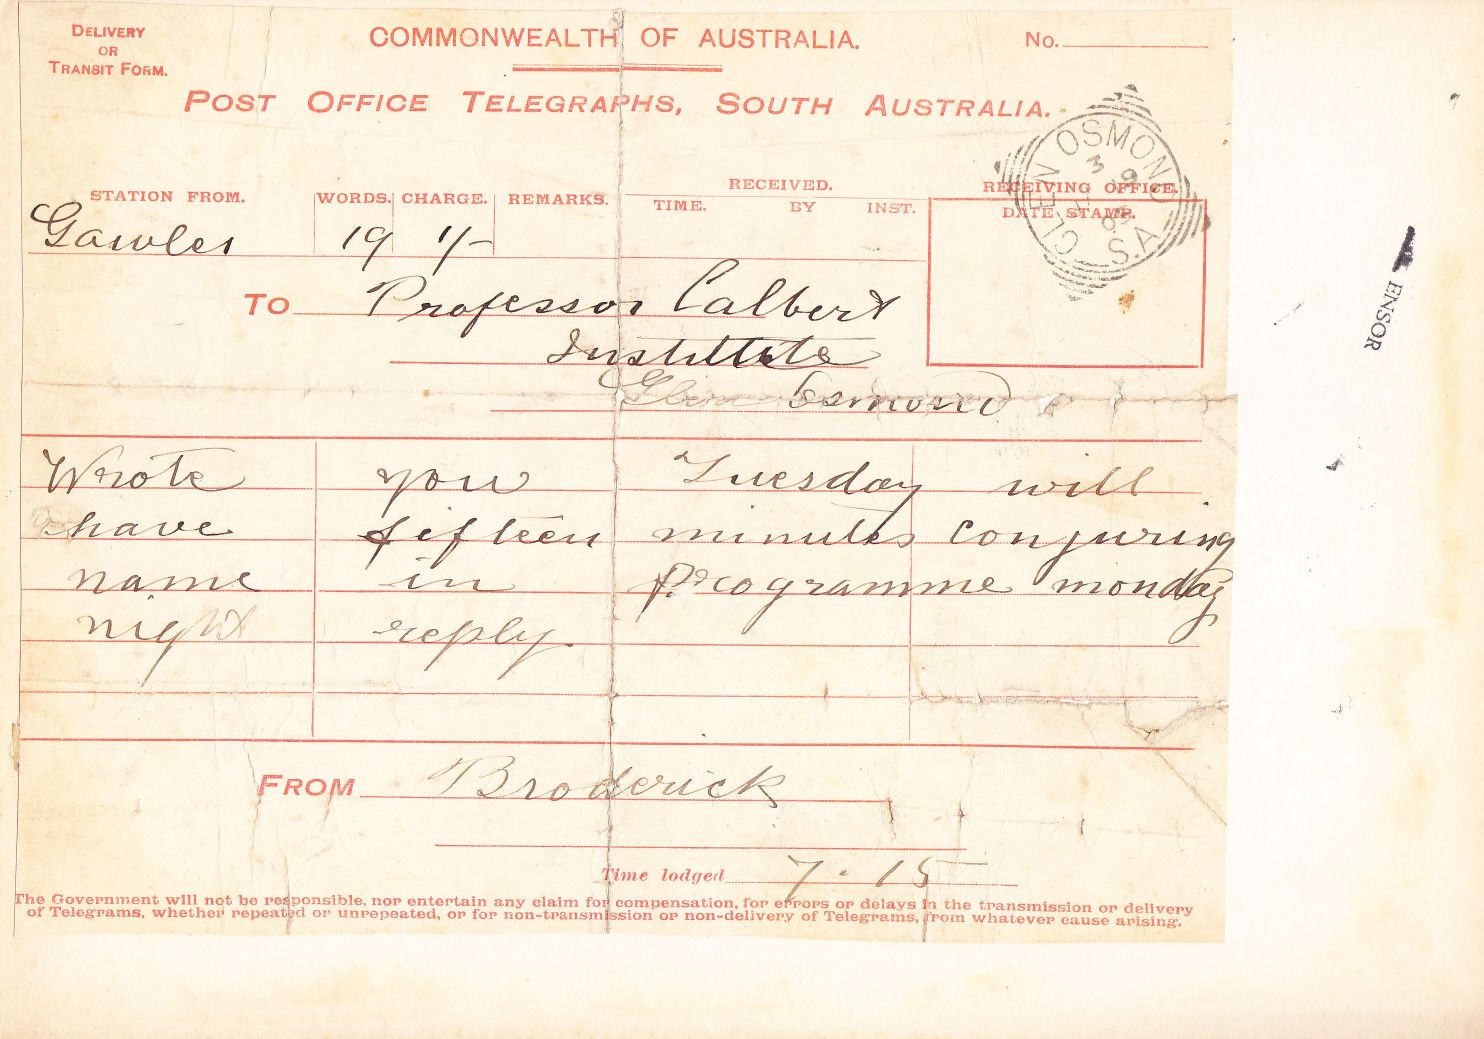 DELIVERY
OR
TRANSIT FORM.
COMMONWEALTH OF AUSTRALIA.
No.
POST OFFICE TELEGRAPHS, SOUTH AUSTRALIA.
GLEN OSMOND
S.A
STATION FROM. WORDS. CHARGE. REMARKS. RECEIVED.
TIME. BY INST.
RECEIVING OFFICE.
DATE STAMP.
Gawler 19 1/-
TO Professor Calbert
Institute
Glen Osmond
Wrote you Tuesday will
have fifteen minutes conjuring
name in programme monday
night reply
FROM Broderick
Time lodged 7.15
The Government will not be responsible, nor entertain any claim for compensation, for errors or delays in the transmission or delivery
of Telegrams, whether repeated or unrepeated, or for non-transmission or non-delivery of Telegrams, from whatever cause arising.
ENSOR